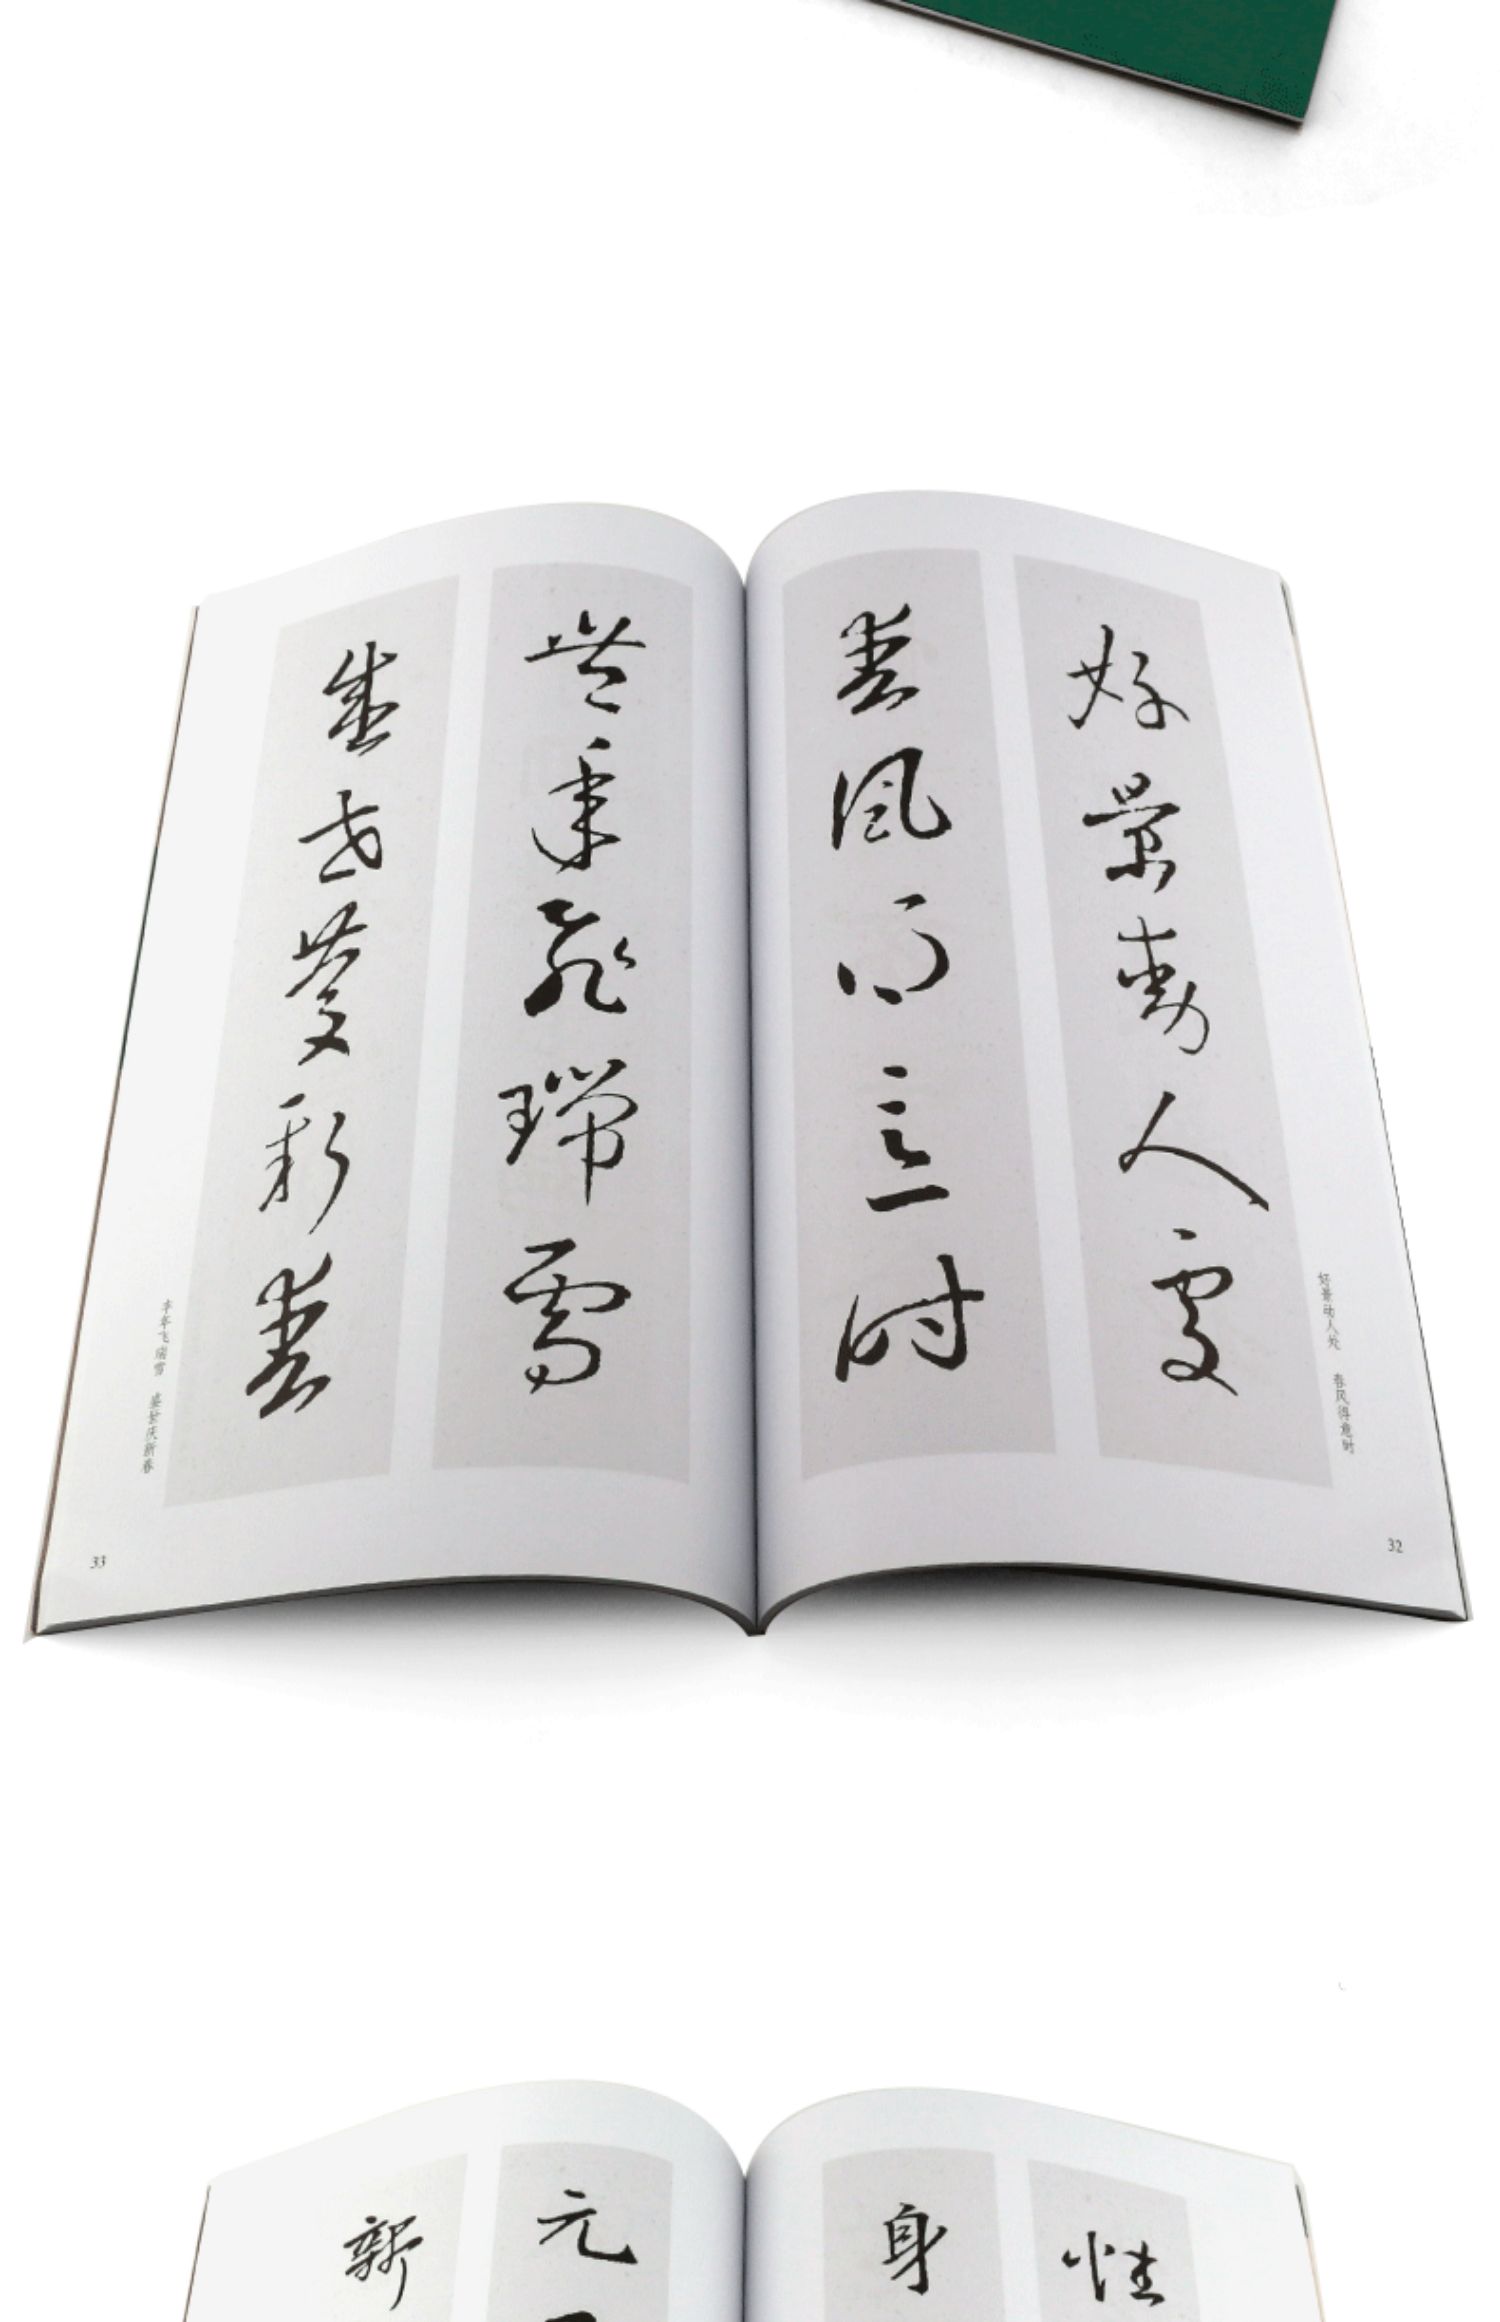 好景動人處
春風得意時
好景动人处 春风得意时
32
豐年飛瑞雪
盛世慶新春
丰年飞瑞雪 盛世庆新春
33
性
身
元
新